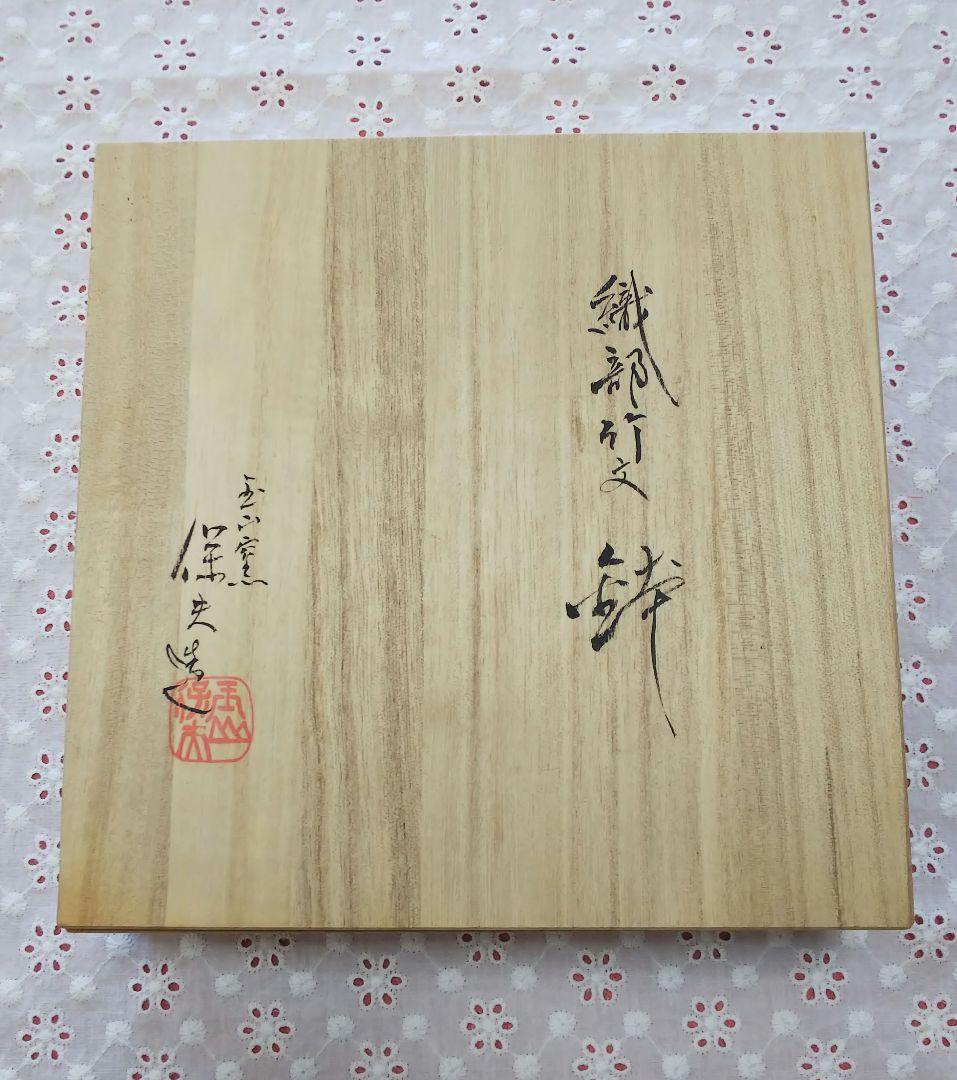 織部竹文 鉢
玉山窯
保夫造
玉山
保夫